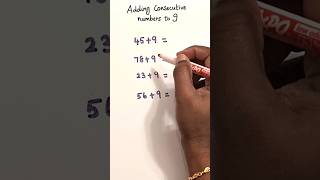 Adding Consecutive
numbers to 9
45+9 =
78+9
23+9 =
56+9 =